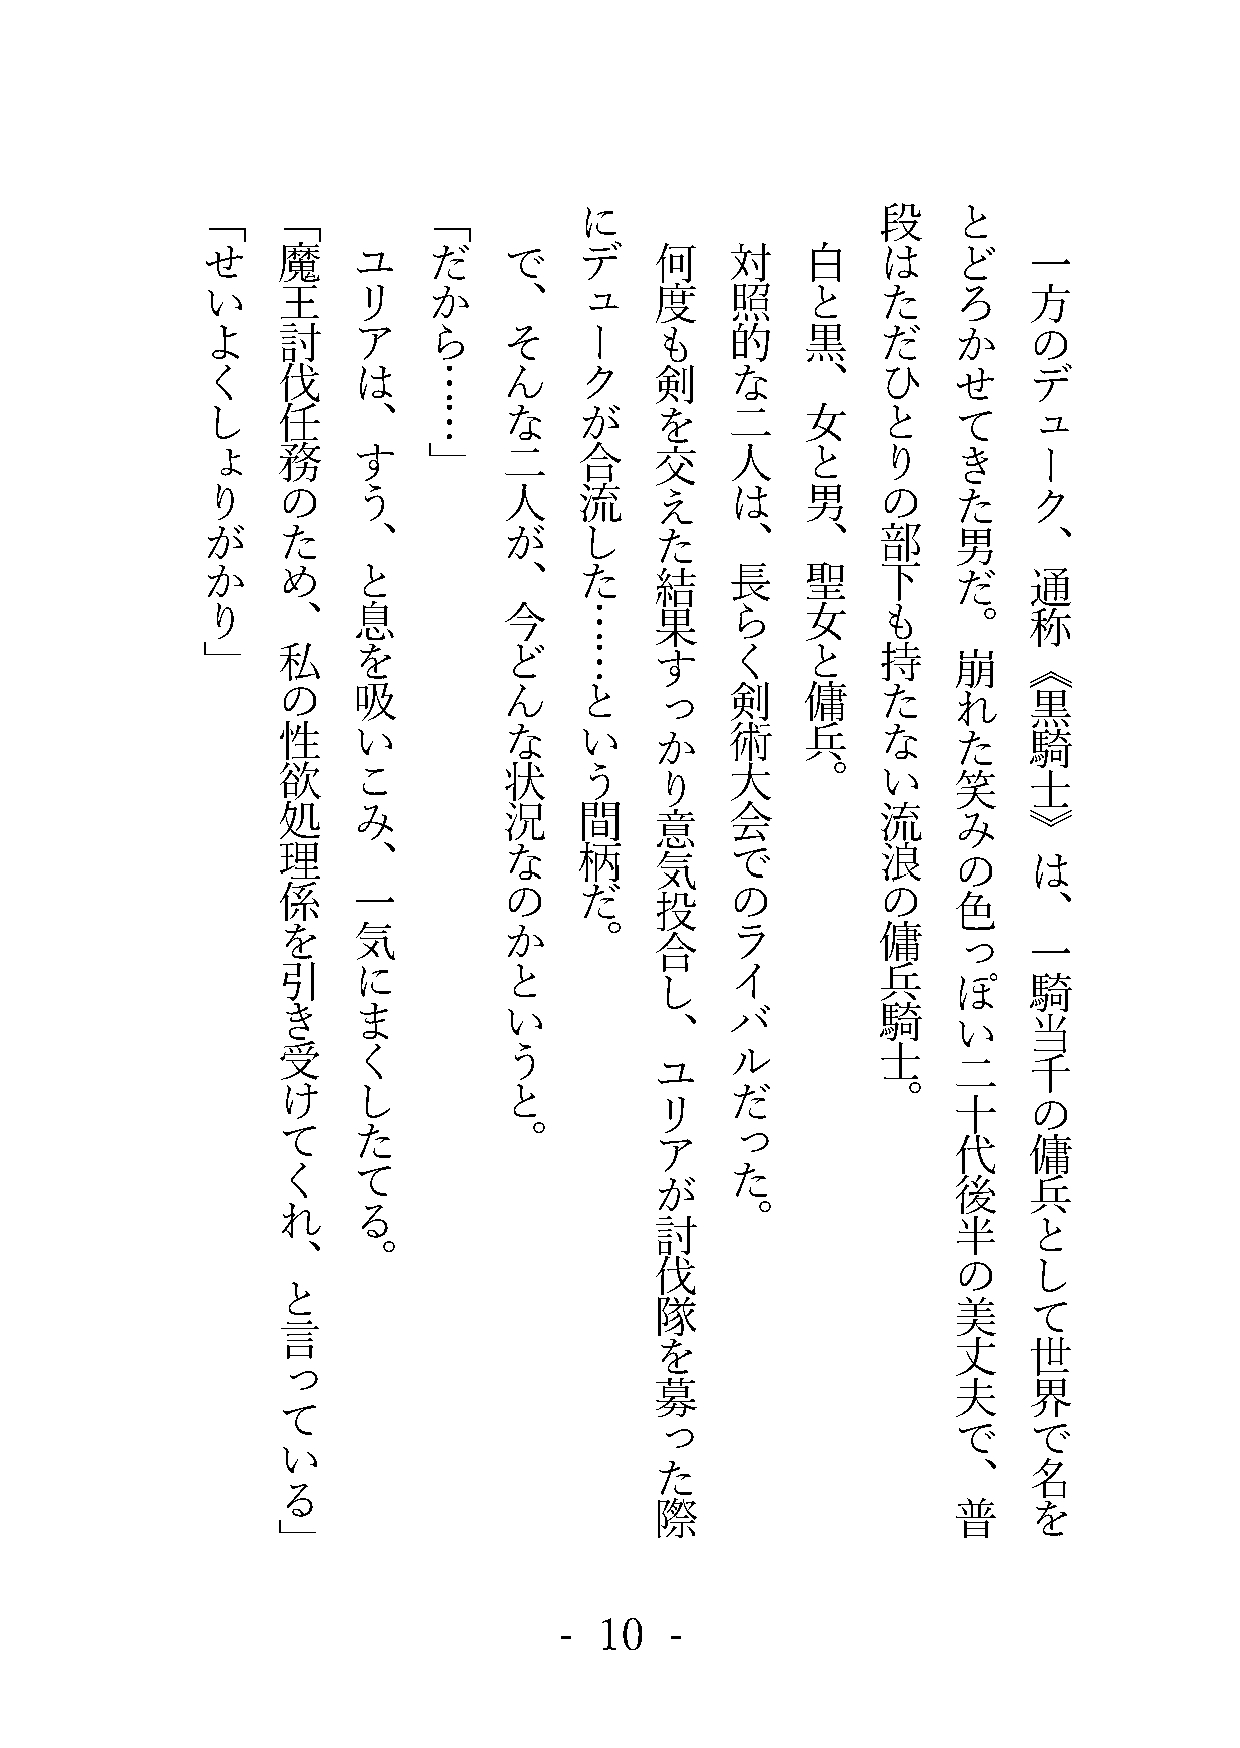 一方のデューク、通称《黒騎士》は、一騎当千の傭兵として世界で名を
とどろかせてきた男だ。崩れた笑みの色っぽい二十代後半の美丈夫で、普
段はただひとりの部下も持たない流浪の傭兵騎士。
　白と黒、女と男、聖女と傭兵。
　対照的な二人は、長らく剣術大会でのライバルだった。
　何度も剣を交えた結果すっかり意気投合し、ユリアが討伐隊を募った際
にデュークが合流した……という間柄だ。
　で、そんな二人が、今どんな状況なのかというと。
「だから……」
　ユリアは、すう、と息を吸いこみ、一気にまくしたてる。
「魔王討伐任務のため、私の性欲処理係を引き受けてくれ、と言っている」
「せいよくしょりがかり」
- 10 -